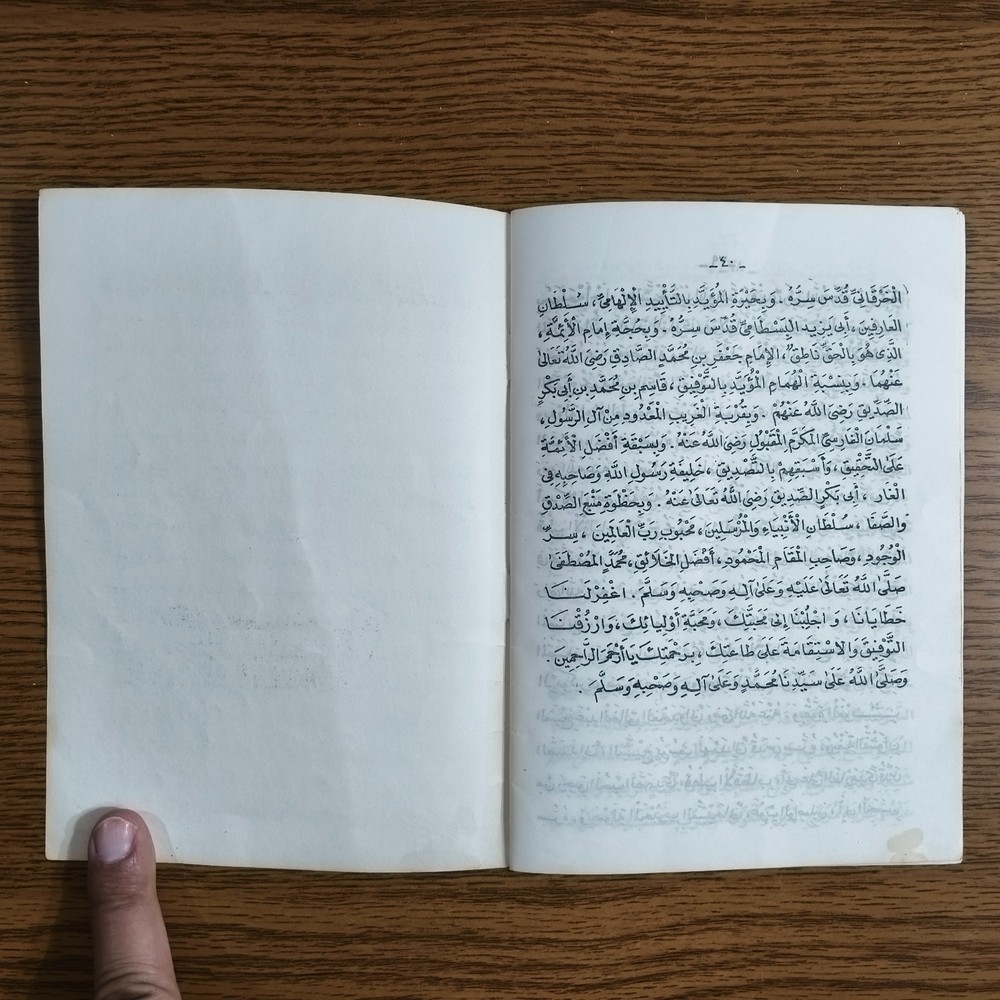 ـ٤٠ـ
الْخَرَقَانِيِّ قُدِّسَ سِرُّهُ . وَبِحَيْرَةِ الْمُؤَيَّدِ بِالتَّأْيِيدِ الْإِلْهَامِيِّ ، سُلْطَانِ
الْعَارِفِينَ ، أَبِى يَزِيدَ الْبَسْطَامِيِّ قُدِّسَ سِرُّهُ . وَبِحُجَّةِ إِمَامِ الْأَئِمَّةِ ،
الَّذِى هُوَ بِالْحَقِّ نَاطِقٌ ، الْإِمَامِ جَعْفَرِ بْنِ مُحَمَّدٍ الصَّادِقِ رَضِىَ اللَّهُ تَعَالَى
عَنْهُمَا . وَبِنِسْبَةِ الْهُمَامِ الْمُؤَيَّدِ بِالتَّوْفِيقِ ، قَاسِمِ بْنِ مُحَمَّدِ بْنِ أَبِى بَكْرٍ
الصِّدِّيقِ رَضِىَ اللَّهُ عَنْهُمْ . وَبِقُرْبَةِ الْغَرِيبِ الْمَعْدُودِ مِنْ آلِ الرَّسُولِ ،
سَلْمَانَ الْفَارِسِيِّ الْمُكَرَّمِ الْمَقْبُولِ رَضِىَ اللَّهُ عَنْهُ . وَبِسَبْقَةِ أَفْضَلِ الْأَئِمَّةِ
عَلَى التَّحْقِيقِ ، وَأَسْبَقِهِمْ بِالتَّصْدِيقِ ، خَلِيفَةِ رَسُولِ اللَّهِ وَصَاحِبِهِ فِى
الْغَارِ ، أَبِى بَكْرٍ الصِّدِيقِ رَضِىَ اللَّهُ تَعَالَى عَنْهُ . وَبِحَظْوَةِ مَنْبَعِ الصِّدْقِ
وَالصَّفَا ، سُلْطَانِ الْأَنْبِيَاءِ وَالْمُرْسَلِينَ ، مَحْبُوبِ رَبِّ الْعَالَمِينَ ، سِرِّ
الْوُجُودِ ، وَصَاحِبِ الْمَقَامِ الْمَحْمُودِ ، أَفْضَلِ الْخَلَائِقِ ، مُحَمَّدٍ الْمُصْطَفَى
صَلَّى اللَّهُ تَعَالَى عَلَيْهِ وَعَلَى آلِهِ وَصَحْبِهِ وَسَلَّمَ . اغْفِرْ لَنَا
خَطَايَانَا ، وَاجْلُبْنَا إِلَى مَحَبَّتِكَ ، وَمَحَبَّةِ أَوْلِيَائِكَ ، وَارْزُقْنَا
التَّوْفِيقَ وَالْاسْتِقَامَةَ عَلَى طَاعَتِكَ ، بِرَحْمَتِكَ يَا أَرْحَمَ الرَّاحِمِينَ .
وَصَلَّى اللَّهُ عَلَى سَيِّدِنَا مُحَمَّدٍ وَعَلَى آلِهِ وَصَحْبِهِ وَسَلَّمَ .